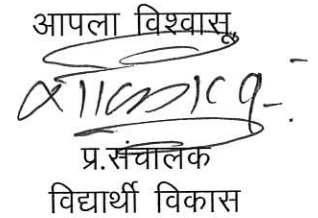 आपला विश्वासू,
प्र.संचालक
विद्यार्थी विकास